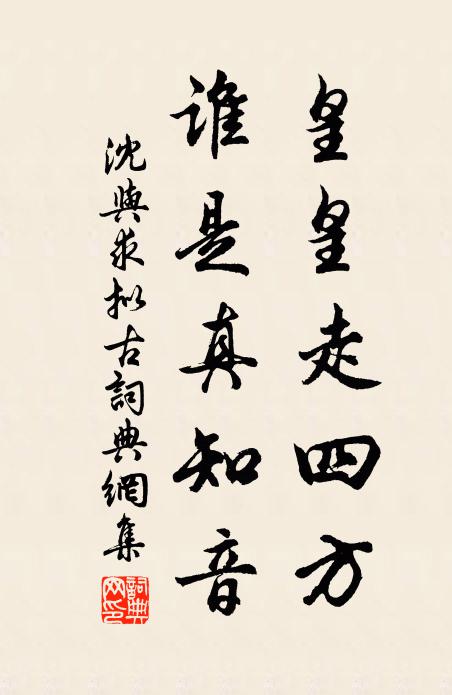 皇皇走四方
谁是真知音
沈與求拟古詞典網集
詞典网印